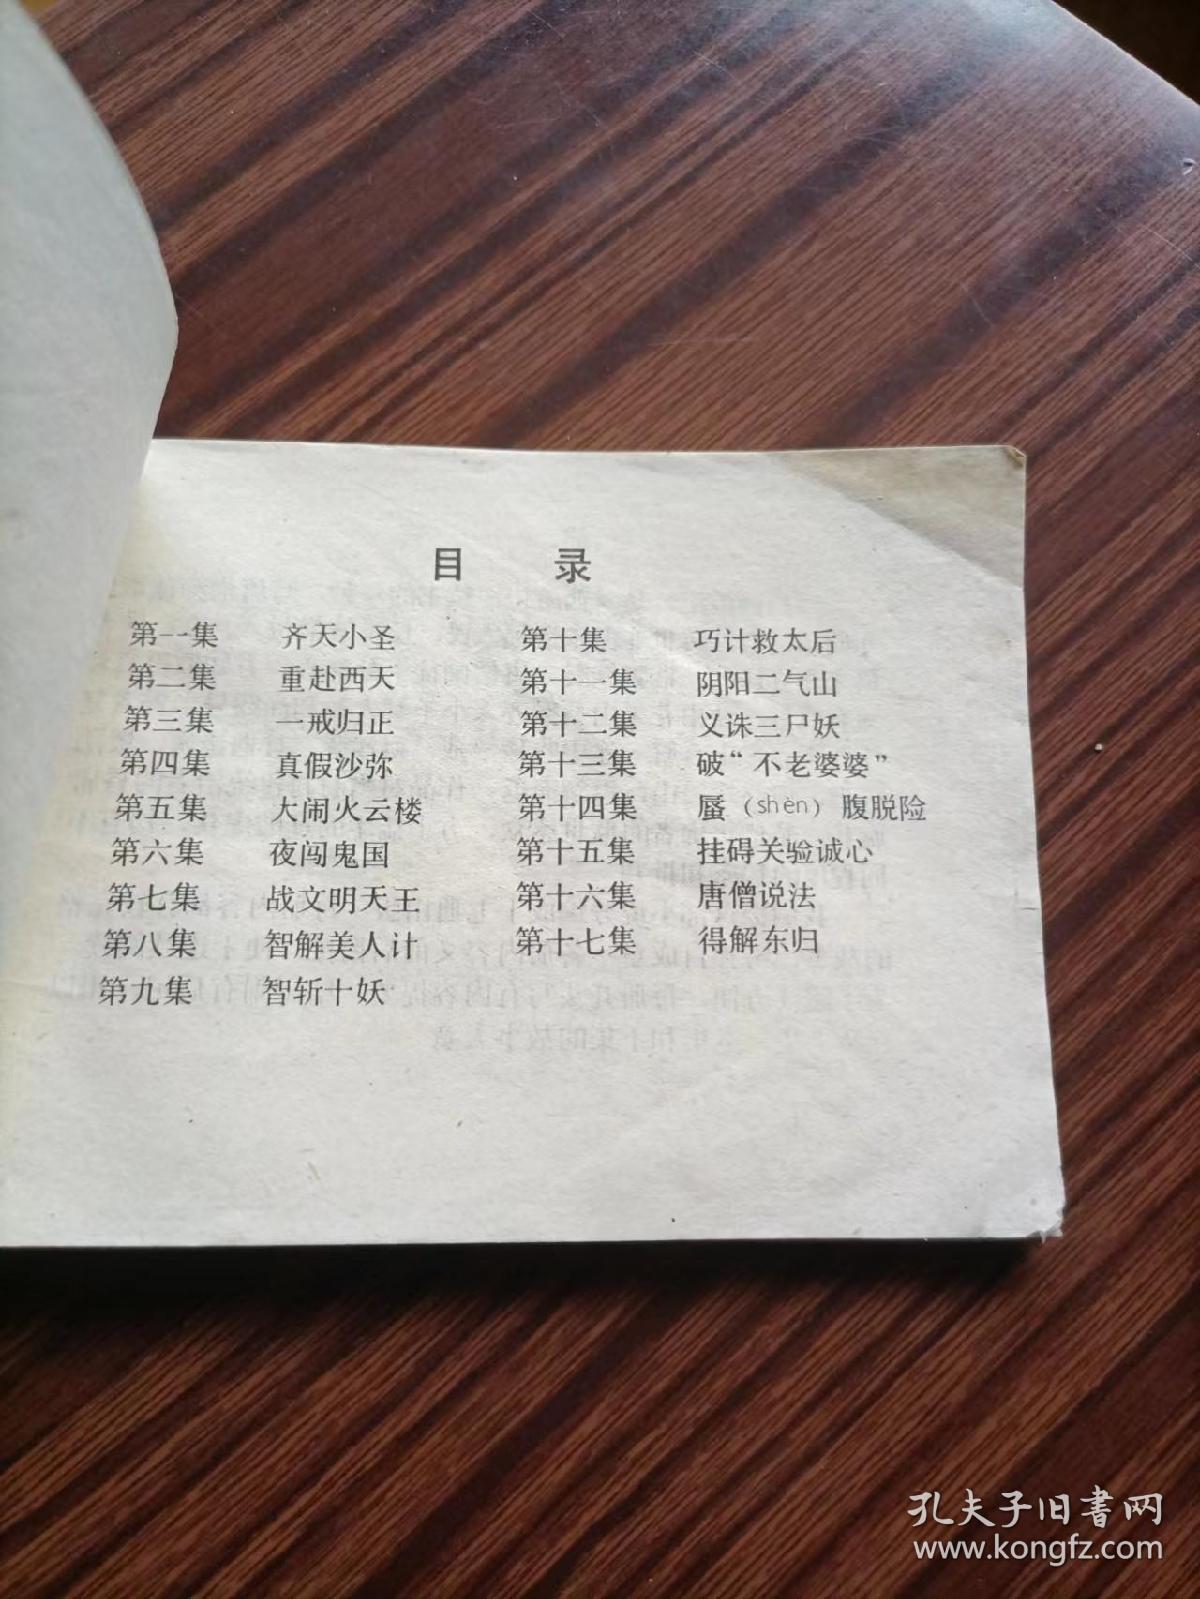 目 录
第一集 齐天小圣
第二集 重赴西天
第三集 一戒归正
第四集 真假沙弥
第五集 大闹火云楼
第六集 夜闯鬼国
第七集 战文明天王
第八集 智解美人计
第九集 智斩十妖
第十集 巧计救太后
第十一集 阴阳二气山
第十二集 义诛三尸妖
第十三集 破“不老婆婆”
第十四集 蜃（shèn）腹脱险
第十五集 挂碍关验诚心
第十六集 唐僧说法
第十七集 得解东归
孔夫子旧书网
www.kongfz.com